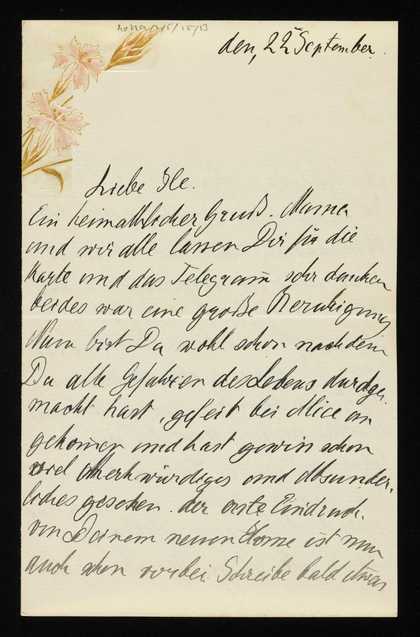 den, 22 September.
Liebe Ile.
Ein heimathlicher Gruß. Mama
und wir alle lassen Dir für die
Karte und das Telegram sehr danken
beides war eine große Beruhigung
Nun bist Du wohl schon nachdem
Du alle Gefahren des Lebens durchge-
macht hast, gefeit bei Alice an
gekommen und hast gewiss schon
viel Merkwürdiges und Absunder-
liches gesehen. der erste Eindruck
von Deinem neuen Home ist nun
auch schon vorbei Schreibe bald etwas